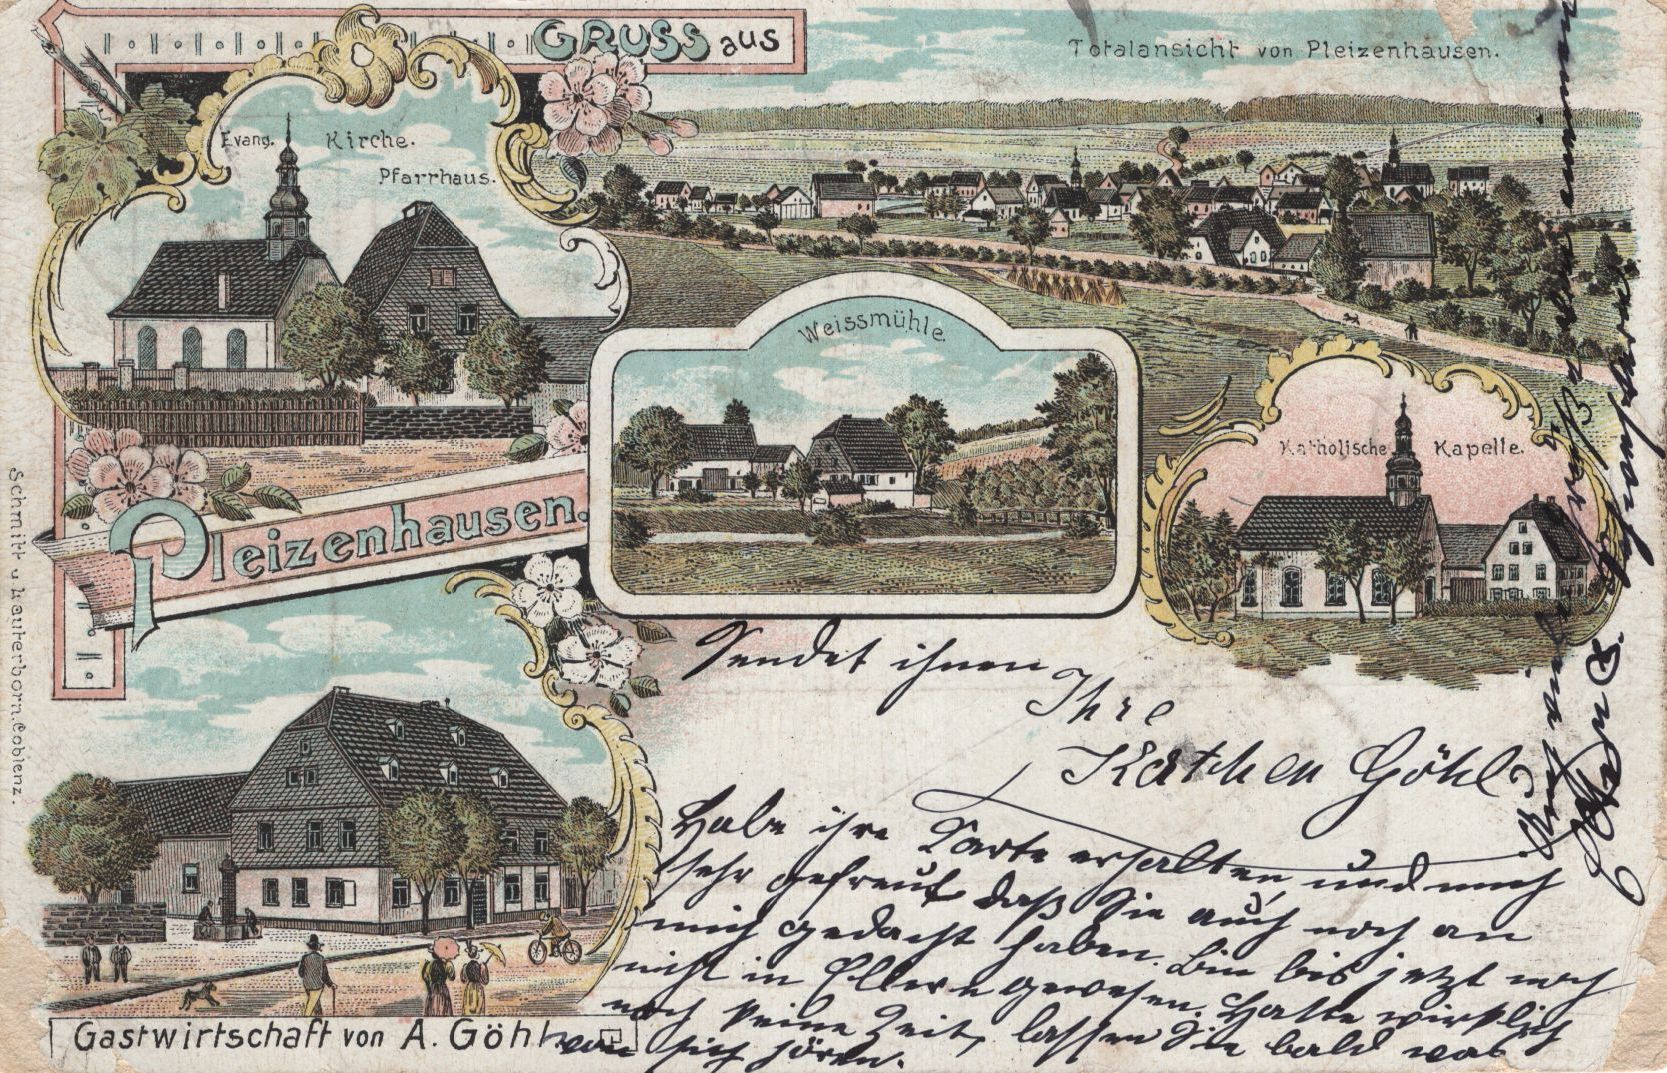 GRUSS aus
Totalansicht von Pleizenhausen.
Evang. Kirche.
Pfarrhaus.
Weissmühle.
Katholische Kapelle.
Pleizenhausen.
Schmitt u. Lauterborn. Coblenz.
Gastwirtschaft von A. Göhl
Sendet ihnen
Ihre
Kätchen Göhl
Habe ihre Karte erhalten und mich
sehr gefreut daß Sie auch noch an
mich gedacht haben. Bin bis jetzt noch
nicht in Ellern gewesen. Hatte wirklich
noch keine Zeit, lassen Sie bald was
von sich hören.